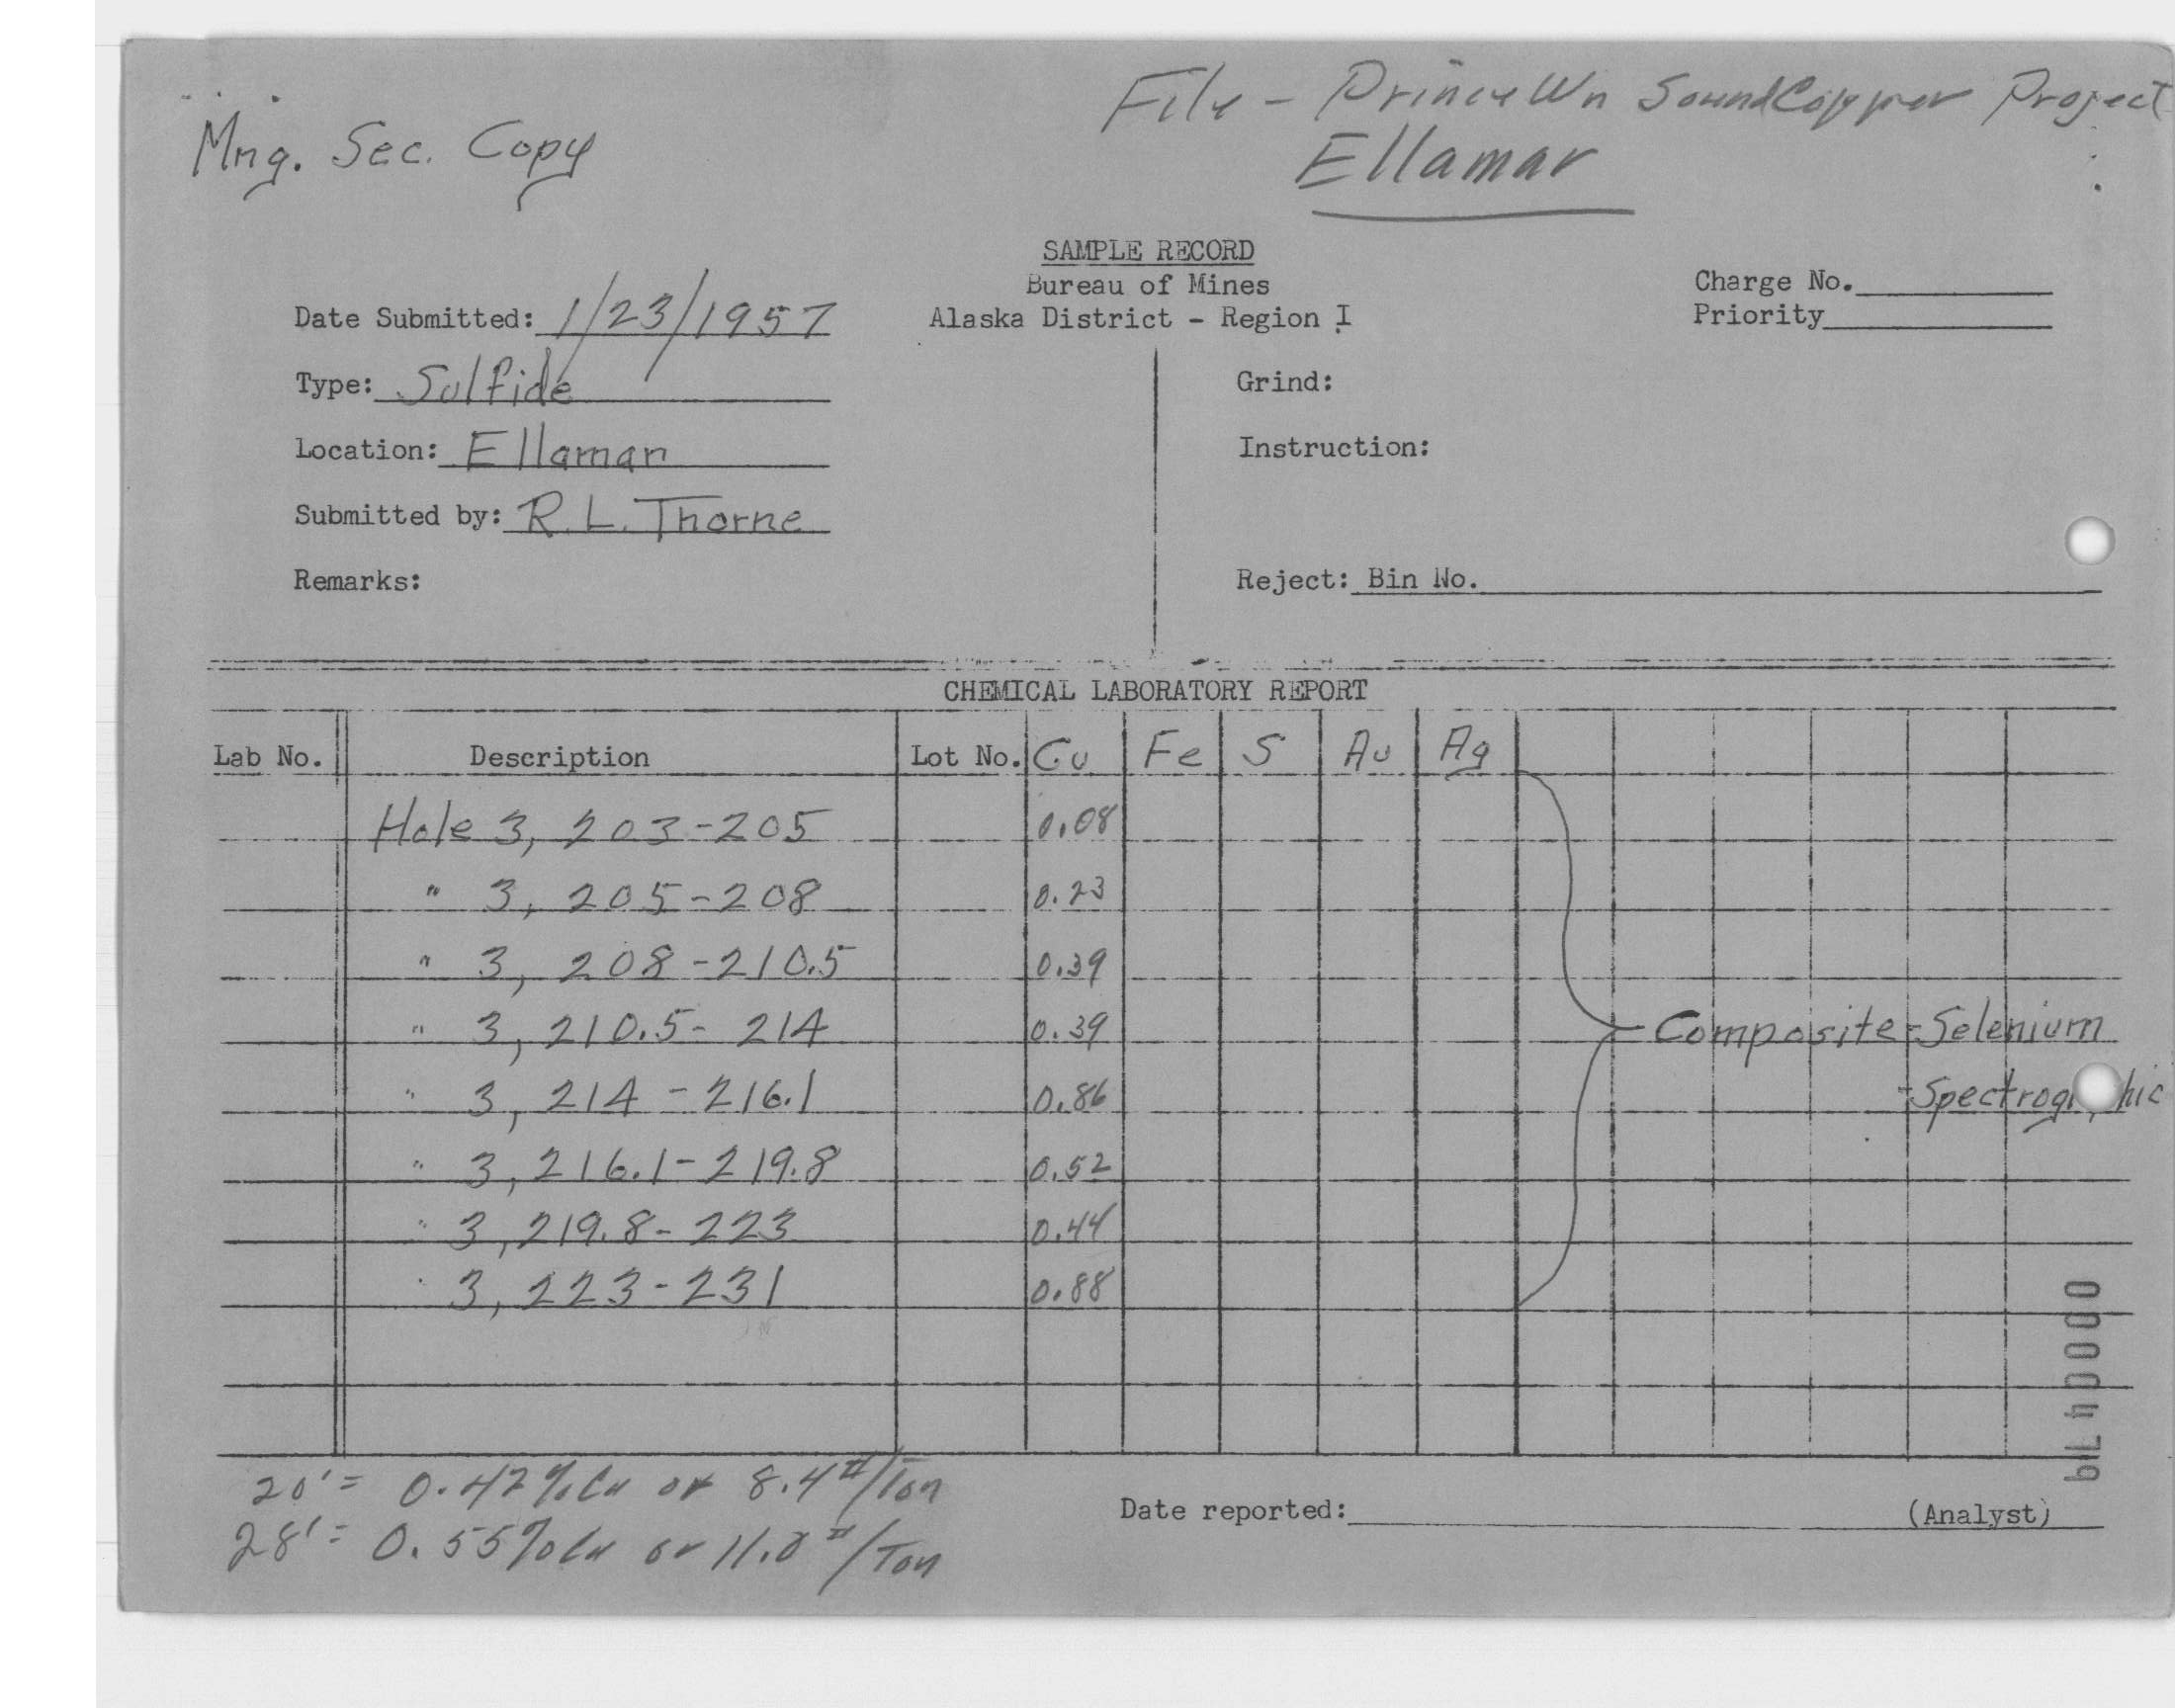 File - Prince Wn Sound Copper Project
Mng. Sec. Copy
Ellamar
SAMPLE RECORD
Bureau of Mines
Alaska District - Region I
Charge No.
Priority
Date Submitted: 1/23/1957
Type: Sulfide
Location: Ellamar
Submitted by: R.L. Thorne
Remarks:
Grind:
Instruction:
Reject: Bin No.
CHEMICAL LABORATORY REPORT
Lab No. Description Lot No. Cu Fe S Au Ag
Hole 3, 203-205 0.08
" 3, 205-208 0.23
" 3, 208-210.5 0.39
" 3, 210.5-214 0.39
Composite - Selenium
" 3, 214-216.1 0.86
- Spectrographic
" 3, 216.1-219.8 0.52
" 3, 219.8-223 0.44
" 3, 223-231 0.88
20' = 0.42% Cu or 8.4 #/Ton
28' = 0.55% Cu or 11.0 #/Ton
Date reported: (Analyst)